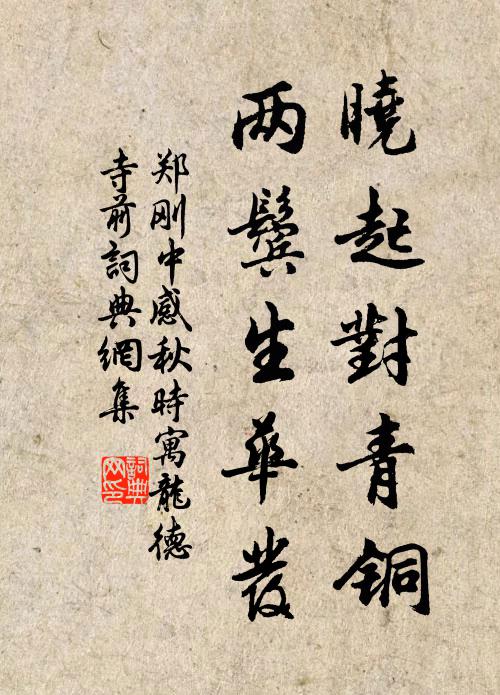 曉起對青铜
两鬓生華發
郑刚中感秋時寓龍德
寺前詞典網集
詞典網印